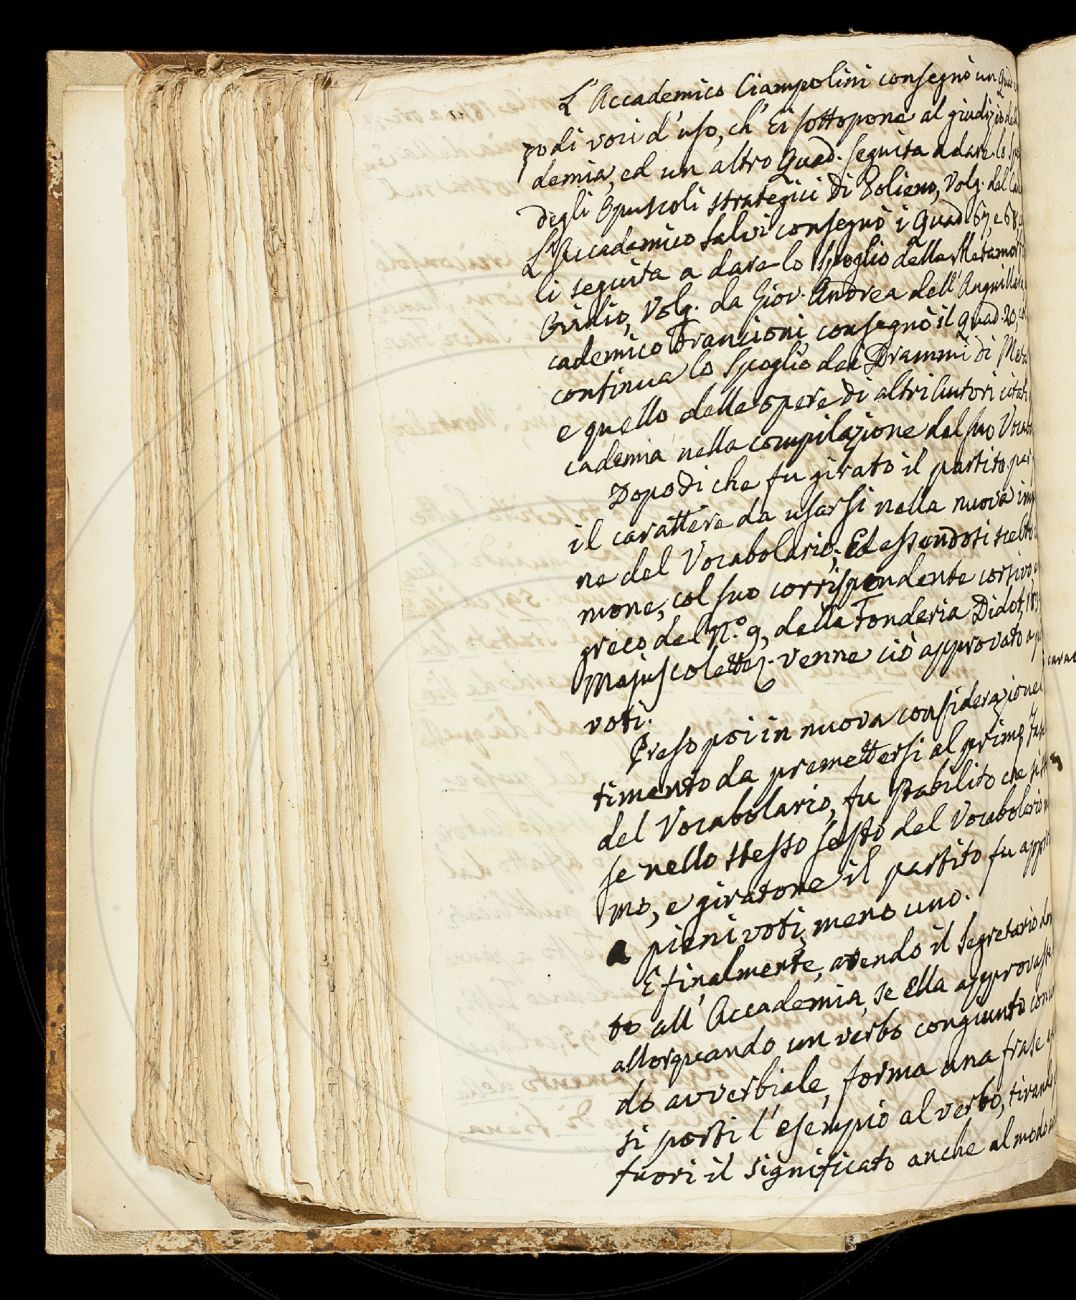 L'Accademico Ciampolini consegnò un
po di voci d'uso, ch'Ei sottopone al giudizio
demia, ed un altro Quad. seguita a dare lo
degli Opuscoli strategici di Polieno, Volg. del
L'Accademico Salvi consegnò i Quad. 67, e 68,
li seguita a dare lo Spoglio delle Metamor
Ovidio, Volg. da Giov. Andrea dell'Anguillara
cademico Francioni consegnò il Quad. 20,
continua lo Spoglio dei Drammi di Meta
e quello delle opere di altri Autori citati
cademia nella compilazione del suo Vocab
Dopo di che fu girato il partito per
il carattere da usarsi nella nuova im
ne del Vocabolario; Ed essendosi scelto
mone, col suo corrispondente corsivo,
greco del N.º 9, della Fonderia Didot,
Majuscolette, venne ciò approvato a
voti.
Preso poi in nuova considerazione
timento da premettersi al primo
del Vocabolario, fu stabilito che
se nello stesso sesto del Vocabolario
mo, e giratone il partito fu appr
a pieni voti meno uno.
E finalmente, avendo il Segretario
to all'Accademia, se Ella approvasse
allorquando un verbo congiunto con
do avverbiale, forma una frase
si porti l'esempio al verbo, tirando
fuori il significato anche al modo